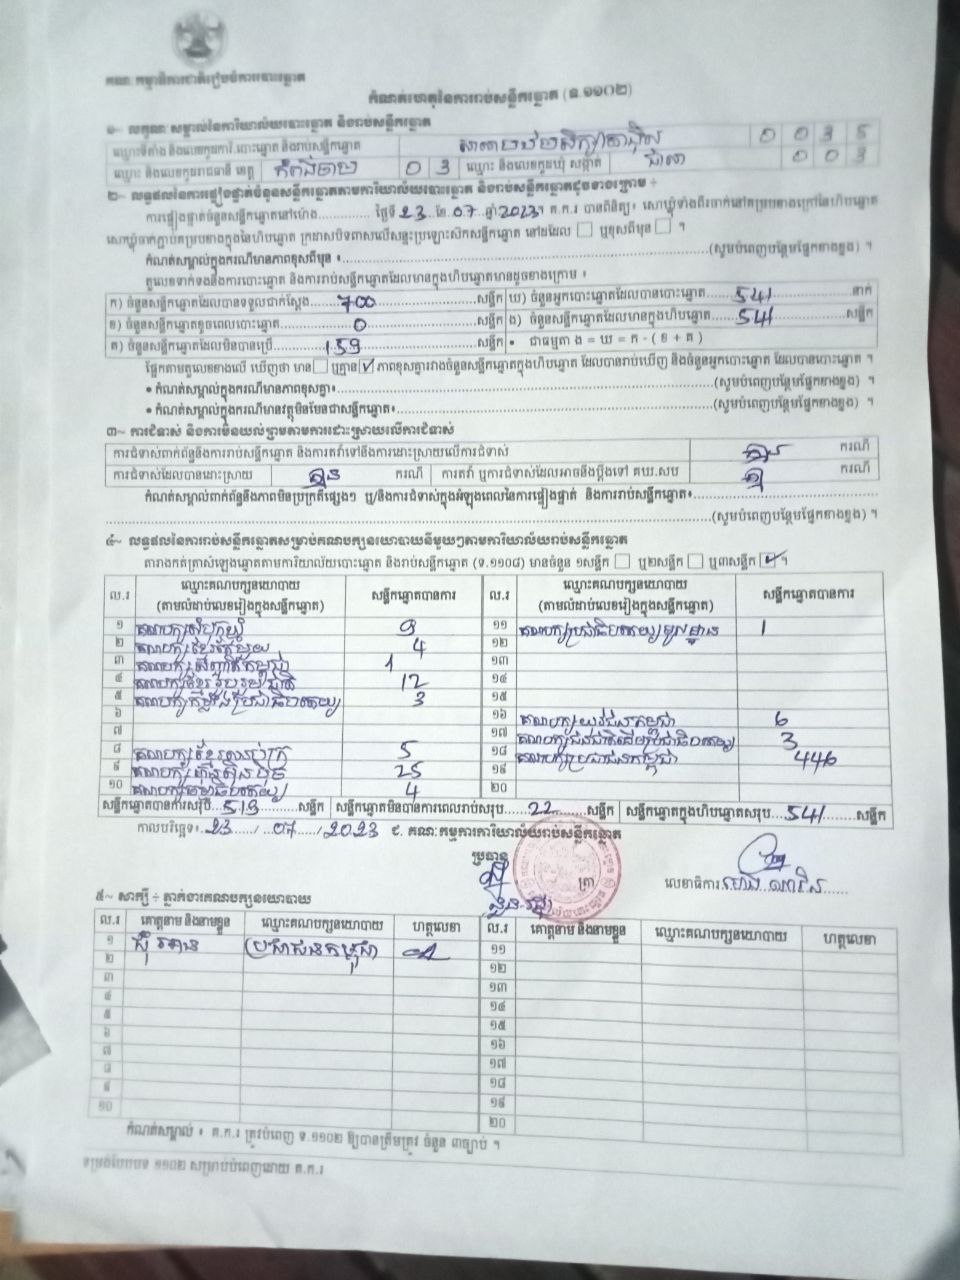 គណៈកម្មាធិការជាតិរៀបចំការបោះឆ្នោត
កំណត់ហេតុនៃការរាប់សន្លឹកឆ្នោត (ទ.១១០២)
១~ លក្ខណៈសម្គាល់នៃការិយាល័យបោះឆ្នោត និងរាប់សន្លឹកឆ្នោត
ឈ្មោះទីតាំង និងលេខកូដការិ.បោះឆ្នោត និងរាប់សន្លឹកឆ្នោត 0 0 3 5
ឈ្មោះ និងលេខកូដរាជធានី ខេត្ត កំពង់ចាម 0 3 ឈ្មោះ និងលេខកូដឃុំ សង្កាត់ 0 0 3
២~ លទ្ធផលនៃការផ្ទៀងផ្ទាត់ចំនួនសន្លឹកឆ្នោតតាមការិយាល័យបោះឆ្នោត និងរាប់សន្លឹកឆ្នោតដូចខាងក្រោម ៖
ការផ្ទៀងផ្ទាត់ចំនួនសន្លឹកឆ្នោតនៅម៉ោង............. ថ្ងៃទី 23 ..ខែ.07..ឆ្នាំ 2023។ គ.ក.រ បានពិនិត្យ៖ សោឃ្លុំទាំងពីរចាក់នៅគម្របខាងក្រៅនៃហិបឆ្នោត
សោឃ្លុំចាក់ភ្ជាប់គម្របខាងក្នុងនៃហិបឆ្នោត ក្រដាសបិទពាសលើសន្ទះប្រឡោះសិកសន្លឹកឆ្នោត នៅដដែល ☐ ឬខុសពីមុន ☐ ។
កំណត់សម្គាល់ក្នុងករណីមានភាពខុសពីមុន ៖......(សូមបំពេញបន្ថែមផ្នែកខាងខ្នង) ។
តួលេខទាក់ទងនឹងការបោះឆ្នោត និងការរាប់សន្លឹកឆ្នោតដែលមានក្នុងហិបឆ្នោតមានដូចខាងក្រោម ៖
ក) ចំនួនសន្លឹកឆ្នោតដែលបានទទួលជាក់ស្តែង....700......សន្លឹក ឃ) ចំនួនអ្នកបោះឆ្នោតដែលបានបោះឆ្នោត......541......នាក់
ខ) ចំនួនសន្លឹកឆ្នោតខូចពេលបោះឆ្នោត......0......សន្លឹក ង) ចំនួនសន្លឹកឆ្នោតដែលមានក្នុងហិបឆ្នោត......541......សន្លឹក
គ) ចំនួនសន្លឹកឆ្នោតដែលមិនបានប្រើ......159......សន្លឹក • ជាធម្មតា ង = ឃ = ក - ( ខ + គ )
ផ្អែកតាមតួលេខខាងលើ ឃើញថា មាន ☐ ឬគ្មាន ☑ ភាពខុសគ្នារវាងចំនួនសន្លឹកឆ្នោតក្នុងហិបឆ្នោត ដែលបានរាប់ឃើញ និងចំនួនអ្នកបោះឆ្នោត ដែលបានបោះឆ្នោត ។
• កំណត់សម្គាល់ក្នុងករណីមានភាពខុសគ្នា៖......(សូមបំពេញបន្ថែមផ្នែកខាងខ្នង) ។
• កំណត់សម្គាល់ក្នុងករណីមានវត្ថុមិនមែនជាសន្លឹកឆ្នោត៖......(សូមបំពេញបន្ថែមផ្នែកខាងខ្នង) ។
៣~ ការជំទាស់ និងការមិនយល់ព្រមតាមការដោះស្រាយលើការជំទាស់
ការជំទាស់ពាក់ព័ន្ធនឹងការរាប់សន្លឹកឆ្នោត និងការតវ៉ាទៅនឹងការដោះស្រាយលើការជំទាស់ គ្មាន ករណី
ការជំទាស់ដែលបានដោះស្រាយ គ្មាន ករណី ការតវ៉ា ឬការជំទាស់ដែលអាចនឹងប្តឹងទៅ គឃ.សប ករណី
កំណត់សម្គាល់ពាក់ព័ន្ធនឹងភាពមិនប្រក្រតីផ្សេងៗ ឬ/និងការជំទាស់ក្នុងអំឡុងពេលនៃការផ្ទៀងផ្ទាត់ និងការរាប់សន្លឹកឆ្នោត៖......
......(សូមបំពេញបន្ថែមផ្នែកខាងខ្នង) ។
៤~ លទ្ធផលនៃការរាប់សន្លឹកឆ្នោតសម្រាប់គណបក្សនយោបាយនីមួយៗតាមការិយាល័យរាប់សន្លឹកឆ្នោត
តារាងកត់ត្រាសំឡេងឆ្នោតតាមការិយាល័យបោះឆ្នោត និងរាប់សន្លឹកឆ្នោត (ទ.១១០៨) មានចំនួន ១សន្លឹក ☐ ឬ២សន្លឹក ☐ ឬ៣សន្លឹក ☑ ។
ល.រ ឈ្មោះគណបក្សនយោបាយ (តាមលំដាប់លេខរៀងក្នុងសន្លឹកឆ្នោត) សន្លឹកឆ្នោតបានការ ល.រ ឈ្មោះគណបក្សនយោបាយ (តាមលំដាប់លេខរៀងក្នុងសន្លឹកឆ្នោត) សន្លឹកឆ្នោតបានការ
១ 9 ១១ 1
២ 4 ១២
៣ 1 ១៣
៤ គណបក្សខ្មែររួបរួមជាតិ 12 ១៤
៥ គណបក្សកម្លាំងប្រជាធិបតេយ្យ 3 ១៥
៦ ១៦ គណបក្សយុវជនកម្ពុជា 6
៧ ១៧ 3
៨ 5 ១៨ គណបក្សប្រជាជនកម្ពុជា 446
៩ គណបក្សហ៊្វុនស៊ិនប៉ិច 25 ១៩
១០ 4 ២០
សន្លឹកឆ្នោតបានការសរុប..519......សន្លឹក សន្លឹកឆ្នោតមិនបានការពេលរាប់សរុប...22......សន្លឹក សន្លឹកឆ្នោតក្នុងហិបឆ្នោតសរុប...541......សន្លឹក
កាលបរិច្ឆេទ៖.23..../..07..../2023 ៩. គណៈកម្មការការិយាល័យរាប់សន្លឹកឆ្នោត
ប្រធាន ត្រា លេខាធិការ
៥~ សាក្សី ៖ ភ្នាក់ងារគណបក្សនយោបាយ
ល.រ គោត្តនាម និងនាមខ្លួន ឈ្មោះគណបក្សនយោបាយ ហត្ថលេខា ល.រ គោត្តនាម និងនាមខ្លួន ឈ្មោះគណបក្សនយោបាយ ហត្ថលេខា
១ ប្រជាជនកម្ពុជា ១១
២ ១២
៣ ១៣
៤ ១៤
៥ ១៥
៦ ១៦
៧ ១៧
៨ ១៨
៩ ១៩
១០ ២០
កំណត់សម្គាល់ ៖ គ.ក.រ ត្រូវបំពេញ ទ.១១០២ ឱ្យបានត្រឹមត្រូវ ចំនួន ៣ច្បាប់ ។
ទម្រង់បែបបទ ១១០២ សម្រាប់បំពេញដោយ គ.ក.រ